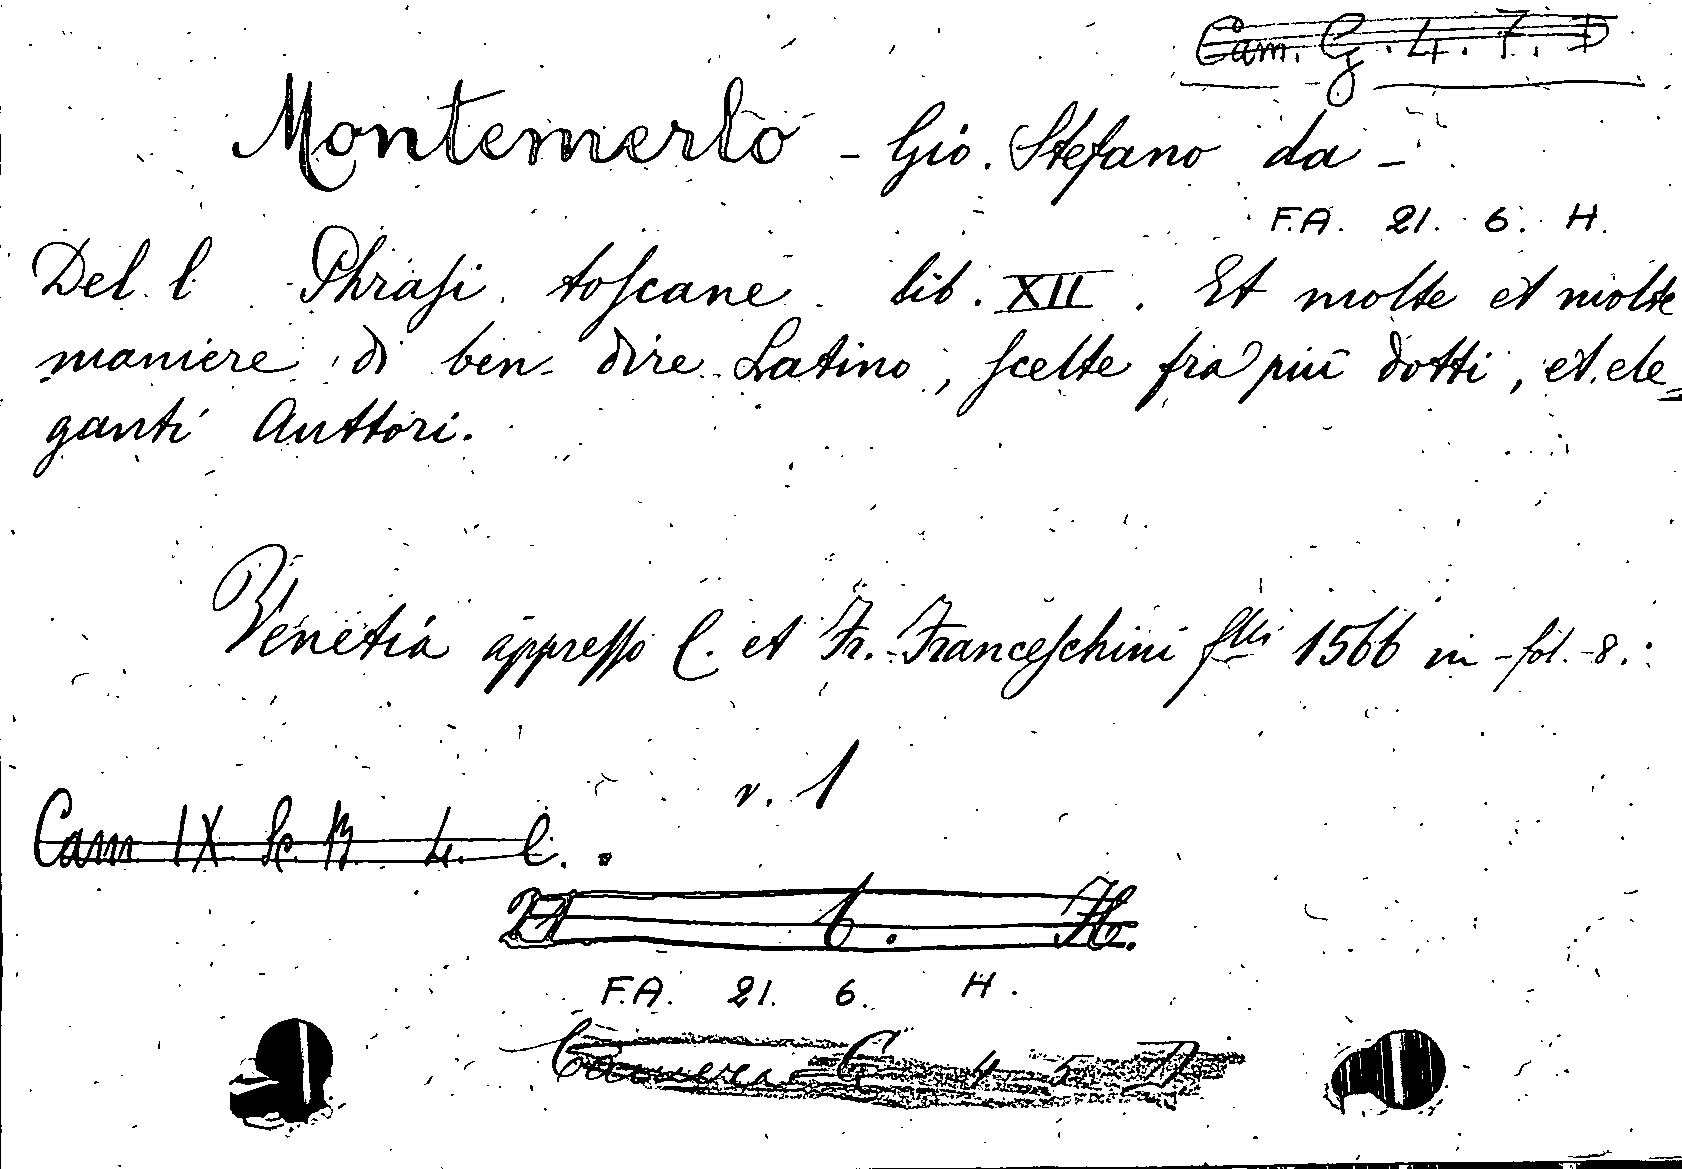 Cam. G. 4. 7. D
Montemerlo - Gio. Stefano da -
F.A. 21. 6. H.
Del l Phraſi toſcane. lib. XII. Et molte et molte
maniere di ben dire Latino, ſcelte fra più dotti, et ele=
ganti Auttori.
Venetia appreſſo C. et Fr. Franceſchini flli 1566 in -fol.-8.
v. 1
Cam IX Sc. B 4. C.
21. 6. H.
F.A. 21. 6. H.
Camera G 4 5